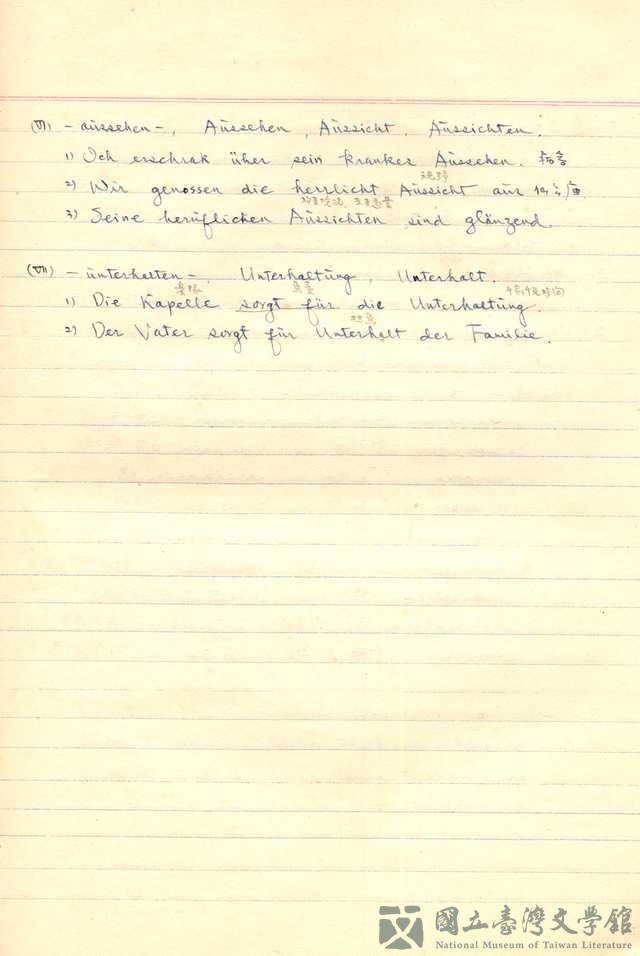 (VI) – aussehen –, Aussehen, Aussicht, Aussichten.
1) Ich erschrak über sein krankes Aussehen. 病容
視野
2) Wir genossen die herrlicht Aussicht aus
3) Seine beruflichen Aussichten sind glänzend.
(VII) – unterhalten –, Unterhaltung, Unterhalt.
1) Die Kapelle sorgt für die Unterhaltung.
2) Der Vater sorgt für Unterhalt der Familie.
國立臺灣文學館
National Museum of Taiwan Literature